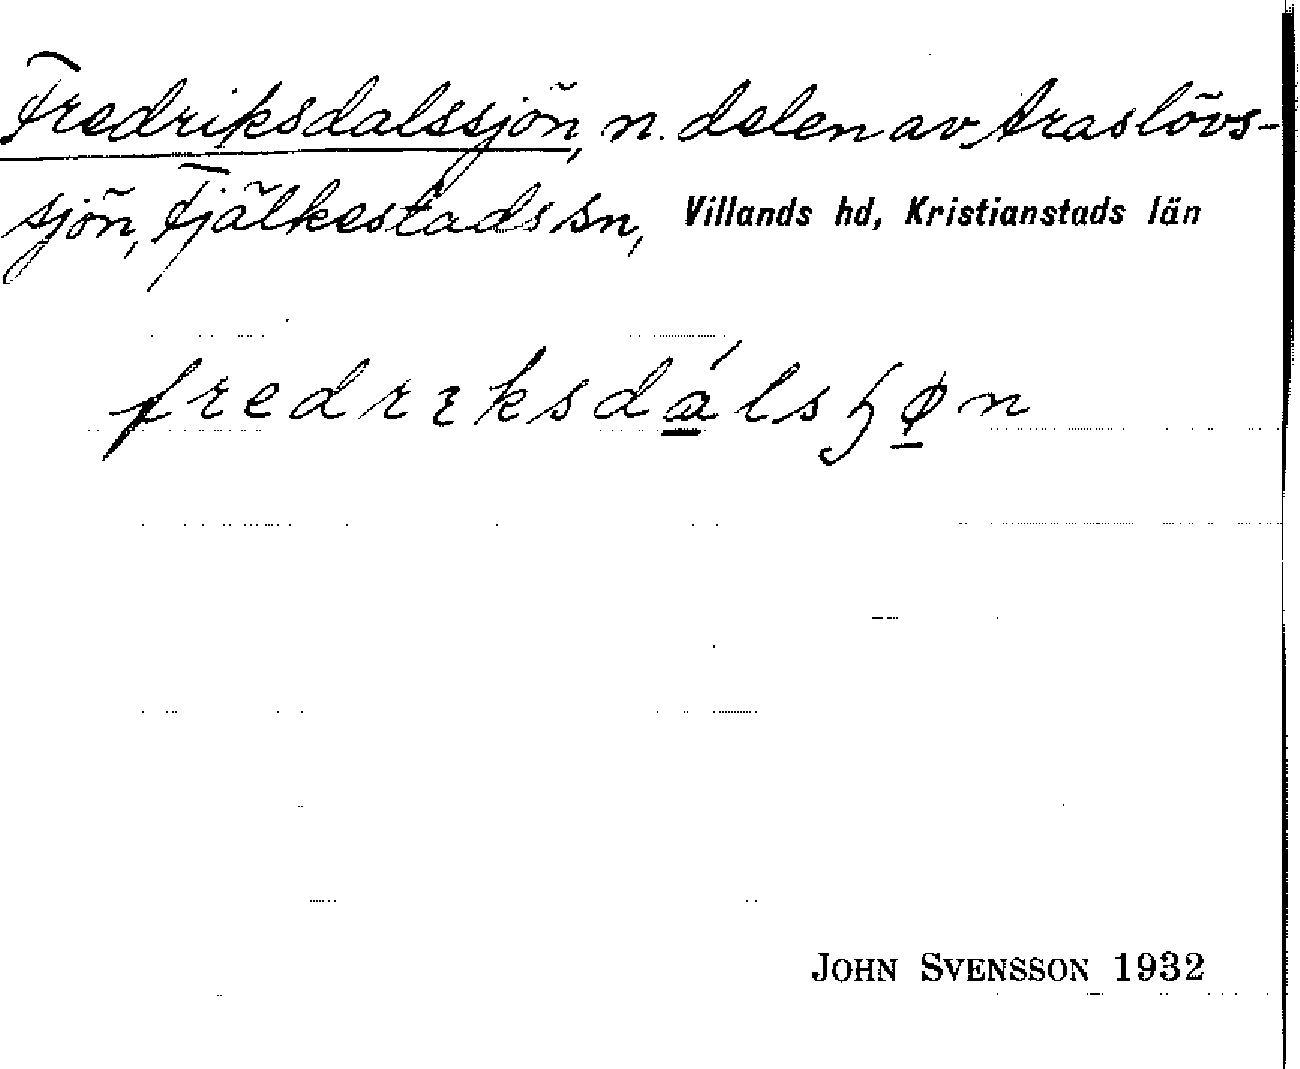 Fredriksdalssjön, n. delen av Araslövs-
sjön, Fjälkestads sn, Villands hd, Kristianstads län
fredrɩksdálsꞕøn
JOHN SVENSSON 1932